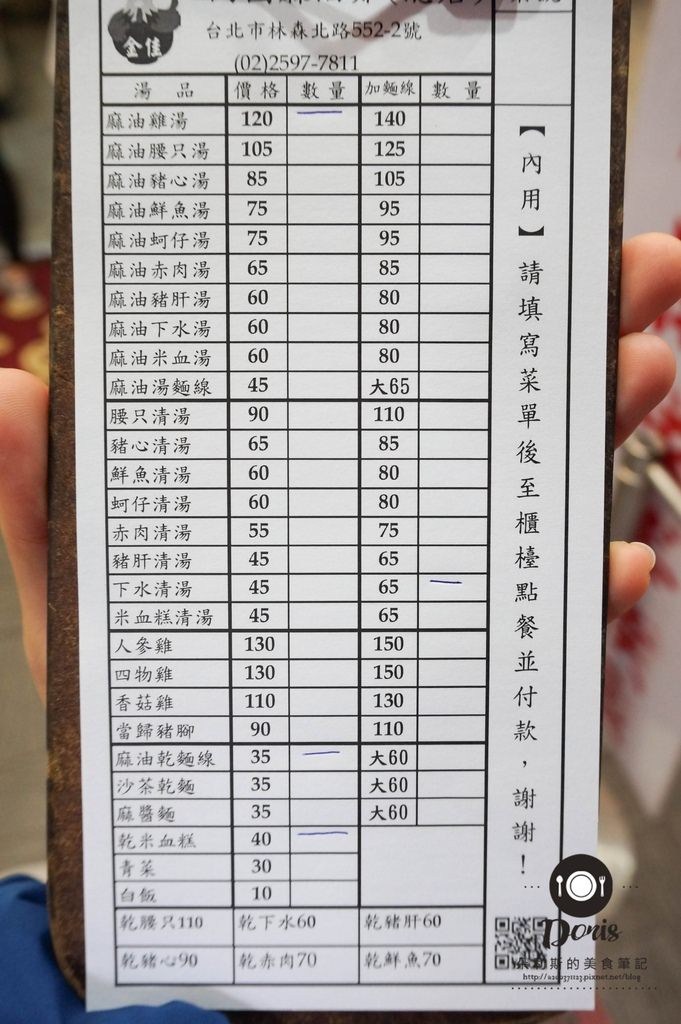 金佳
台北市林森北路552-2號
(02)2597-7811
湯品 價格 數量 加麵線 數量
麻油雞湯 120 一 140
麻油腰只湯 105 125
麻油豬心湯 85 105
麻油鮮魚湯 75 95
麻油蚵仔湯 75 95
麻油赤肉湯 65 85
麻油豬肝湯 60 80
麻油下水湯 60 80
麻油米血湯 60 80
麻油湯麵線 45 大65
腰只清湯 90 110
豬心清湯 65 85
鮮魚清湯 60 80
蚵仔清湯 60 80
赤肉清湯 55 75
豬肝清湯 45 65
下水清湯 45 65 一
米血糕清湯 45 65
人參雞 130 150
四物雞 130 150
香菇雞 110 130
當歸豬腳 90 110
麻油乾麵線 35 一 大60
沙茶乾麵 35 大60
麻醬麵 35 大60
乾米血糕 40 一
青菜 30
白飯 10
乾腰只110 乾下水60 乾豬肝60
乾豬心90 乾赤肉70 乾鮮魚70
【內用】請填寫菜單後至櫃檯點餐並付款，謝謝！
Donis
朵莉斯的美食筆記